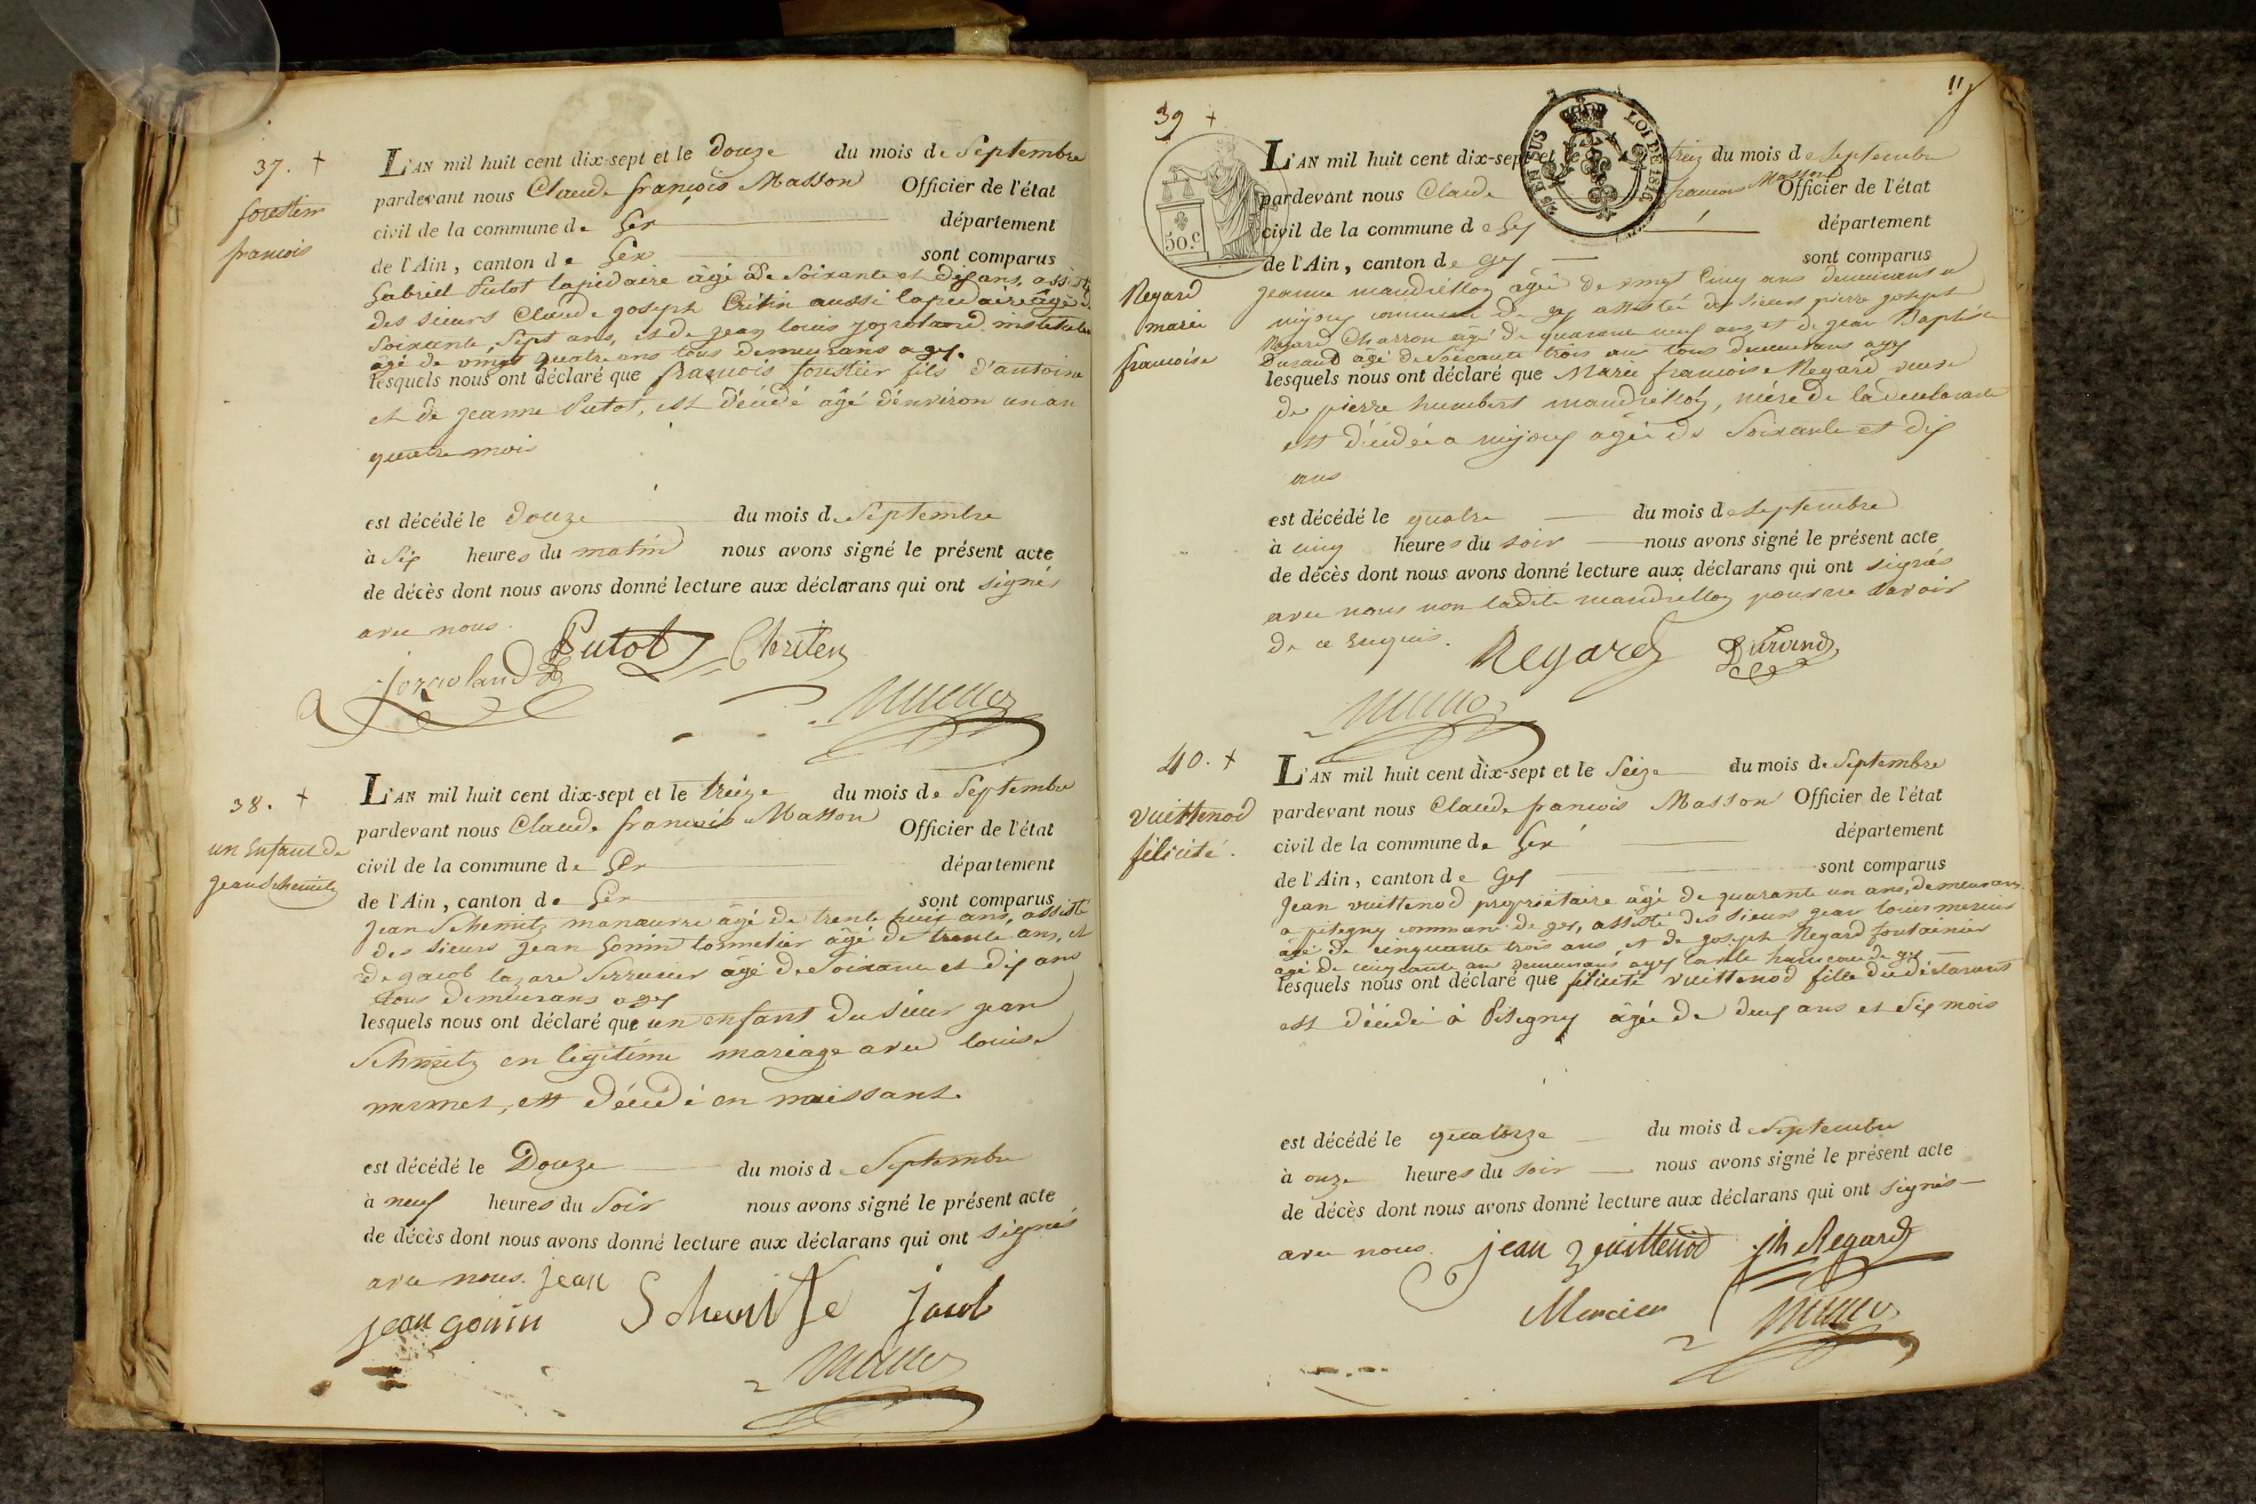 37. +
forestier
francois
L'AN mil huit cent dix-sept et le douze du mois de Septembre
pardevant nous Claude françois Masson Officier de l'état
civil de la commune de Gex département
de l'Ain, canton de Gex sont comparus
Gabriel Putot lapidaire âgé de Soixante et dix ans, assisté
des sieurs Claude joseph Critin aussi lapidaire âgé de
Soixante Sept ans, et de jean louis
âgé de vingt quatre ans tous demeurans a gex.
lesquels nous ont déclaré que françois forestier fils d'antoine
et de jeanne Putot, est décédé âgé d'environ un an
quatre mois
est décédé le douze du mois de Septembre
à six heures du matin nous avons signé le présent acte
de décès dont nous avons donné lecture aux déclarans qui ont signés
avec nous.
Putot Chriten
38. +
un Enfant de
jean Schemitz
L'AN mil huit cent dix-sept et le treize du mois de Septembre
pardevant nous Claude françois Masson Officier de l'état
civil de la commune de Gex département
de l'Ain, canton de Gex sont comparus
jean Schemitz manœuvre âgé de trente huit ans, assisté
des sieurs jean Gonin tonnelier âgé de trente ans, et
de jacob lazare Serrurier âgé de Soixante et dix ans
tous demeurans a gex
lesquels nous ont déclaré que un enfant du sieur jean
Schmitz en légitime mariage avec louise
mermet, est décédé en naissant.
est décédé le Douze du mois de Septembre
à neuf heures du Soir nous avons signé le présent acte
de décès dont nous avons donné lecture aux déclarans qui ont signés
avec nous. jean
jean gonin Schmitse jacob
11
39 +
50.c
EN SUS LOI DE 1816
Regard
marie
francoise
L'AN mil huit cent dix-sept et le treize du mois de Septembre
pardevant nous Claude francois Masson Officier de l'état
civil de la commune de Gex département
de l'Ain, canton de Gex sont comparus
jeanne mandrillon âgée de vingt Cinq ans demeurant a
mijoux commune de gex assistée des sieurs pierre joseph
Regard Charron âgé de quarante neuf ans et de jean Baptiste
Durand âgé de Soixante trois ans tous demeurans a gex
lesquels nous ont déclaré que Marie francoise Regard veuve
de pierre humbert mandrillon, mère de la déclarante
est décédée a mijoux agée de Soixante et dix
ans
est décédé le quatre du mois de Septembre
à cinq heures du soir nous avons signé le présent acte
de décès dont nous avons donné lecture aux déclarans qui ont signés
avec nous non ladite mandrillon pour ne savoir
de ce enquis.
Regard Durand
40. +
vuittenod
félicité.
L'AN mil huit cent dix-sept et le Seize du mois de Septembre
pardevant nous Claude francois Masson Officier de l'état
civil de la commune de Gex département
de l'Ain, canton de Gex sont comparus
Jean vuittenod propriétaire âgé de quarante un ans, demeurans
a pitegny commune de gex, assisté des sieurs jean louis mercier
âgé de cinquante trois ans, et de joseph Regard fontainier
âgé de cinquante ans demeurans a gex
lesquels nous ont déclaré que félicité vuittenod fille du déclarant
est décédée à Pitegny âgée de deux ans et dix mois
est décédé le quatorze du mois de Septembre
à onze heures du soir nous avons signé le présent acte
de décès dont nous avons donné lecture aux déclarans qui ont signés
avec nous. jean vuittenod jh Regard
Mercier